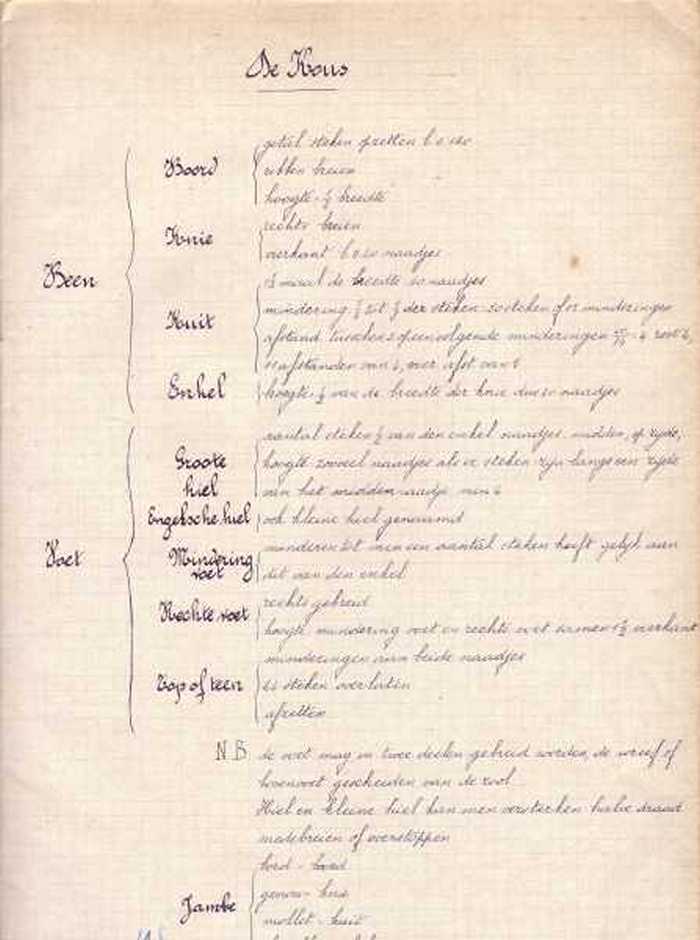 De Kous
Been
Boord
getal steken opzetten b.v. 120
ribben breien
hoogte = ½ breedte
Knie
rechts breien
vierkant b.v. 50 naadjes
Kuit
maal de breedte 50 naadjes
mindering tot der steken 20 steken of 10 minderingen
afstand tusschen 2 opeenvolgende minderingen
afstanden van over
Enkel
hoogte ½ van de breedte der knie dus 20 naadjes
Voet
Groote
hiel
aantal steken ½ van den enkel naadjes midden, op zijde,
hoogte zooveel naadjes als er steken zijn langs een zijde
van het midden naadje min
Engelsche hiel
ook kleine hiel genaamd
Mindering
voet
minderen tot men een aantal steken heeft gelijk aan
dit van den enkel
Rechte voet
rechts gebreid
hoogte mindering voet en rechte voet samen 1½ vierkant
Top of teen
minderingen aan beide naadjes
steken overlaten
afzetten
N.B de voet mag in twee deelen gebreid worden, de wreef of
bovenvoet gescheiden van de zool
Hiel en kleine hiel kan men versterken halve draad
medebreien of overstoppen
Jambe
bord - boord
genou - knie
mollet - kuit